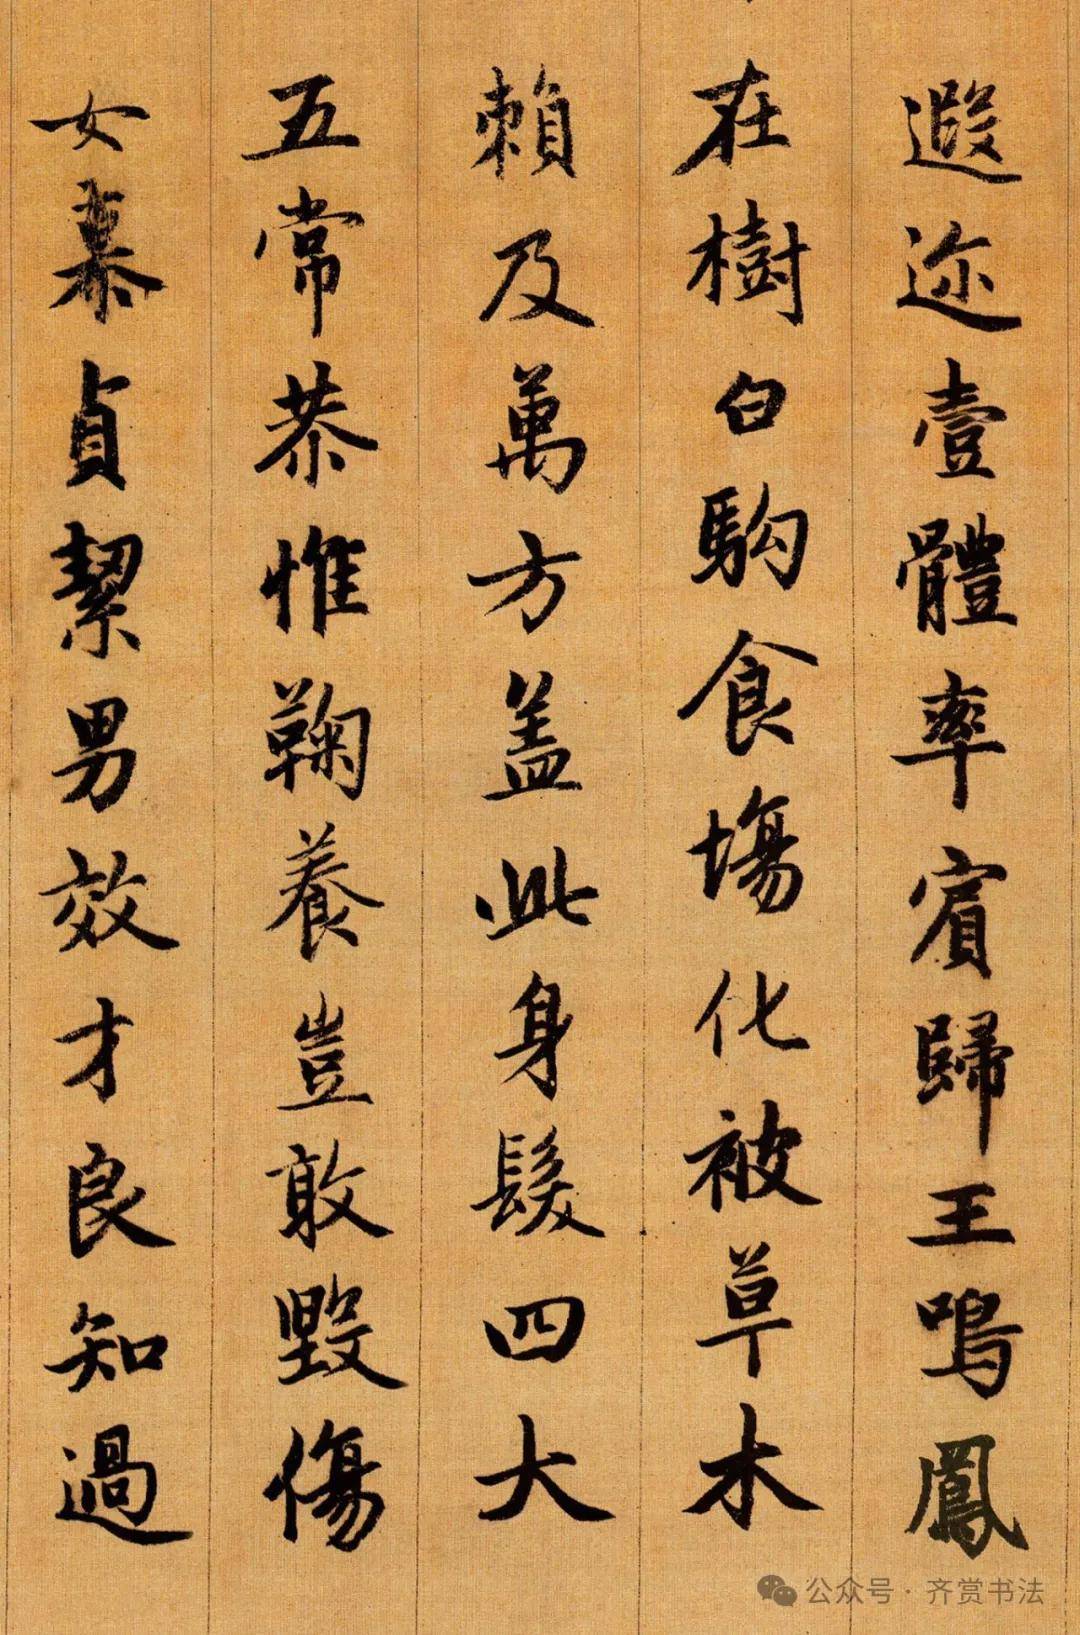 遐迩壹體率賓歸王嗚鳳
在樹白駒食場化被草木
賴及萬方盖此身髮四大
五常恭惟鞠養豈敢毀傷
女慕貞絜男效才良知過
公众号·齐赏书法